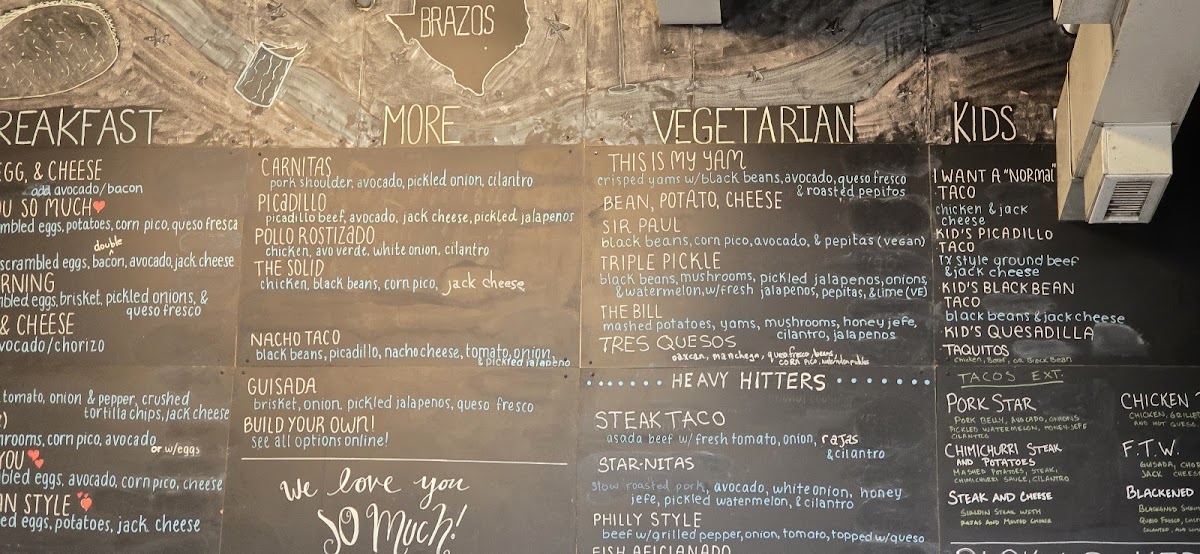 BRAZOS
REAKFAST
EGG, & CHEESE
add avocado/bacon
OU SO MUCH
mbled eggs, potatoes, corn pico, queso fresca
double
scrambled eggs, bacon, avocado, jack cheese
RNING
mbled eggs, brisket, pickled onions, &
queso fresco
& CHEESE
avocado/chorizo
tomato, onion & pepper, crushed
tortilla chips, jack cheese
hrooms, corn pico, avocado
or w/eggs
YOU
mbled eggs, avocado, corn pico, cheese
AN STYLE
ed eggs, potatoes, jack cheese
MORE
CARNITAS
pork shoulder, avocado, pickled onion, cilantro
PICADILLO
picadillo beef, avocado, jack cheese, pickled jalapenos
POLLO ROSTIZADO
chicken, avo verde, white onion, cilantro
THE SOLID
chicken, black beans, corn pico, jack cheese
NACHO TACO
black beans, picadillo, nacho cheese, tomato, onion,
& pickled jalapeno
GUISADA
brisket, onion, pickled jalapenos, queso fresco
BUILD YOUR OWN!
see all options online!
We love you
SO MUCH!
VEGETARIAN
THIS IS MY YAM
crisped yams w/black beans, avocado, queso fresco
& roasted pepitos
BEAN, POTATO, CHEESE
SIR PAUL
black beans, corn pico, avocado, & pepitas (vegan)
TRIPLE PICKLE
black beans, mushrooms, pickled jalapenos, onions,
& watermelon, w/fresh jalapenos, pepitas, & lime (VE)
THE BILL
mashed potatoes, yams, mushrooms, honey jefe,
cilantro, jalapenos
TRES QUESOS
oaxcan, manchego, queso fresco, beans,
corn pico,
HEAVY HITTERS
STEAK TACO
asada beef w/ fresh tomato, onion, rajas
& cilantro
STAR-NITAS
slow roasted pork, avocado, white onion, honey
jefe, pickled watermelon, & cilantro
PHILLY STYLE
beef w/grilled pepper, onion, tomato, topped w/queso
FISH AFICIONADO
KIDS
I WANT A "NORMAL"
TACO
chicken & jack
cheese
KID'S PICADILLO
TACO
TX style ground beef
& jack cheese
KID'S BLACK BEAN
TACO
black beans & jack cheese
KID'S QUESADILLA
TAQUITOS
Chicken, Beef, or Black Bean
TACOS EXT.
PORK STAR
PORK BELLY, AVOCADO, ONIONS
PICKLED WATERMELON, HONEY-JEFE
CILANTRO
CHIMICHURRI STEAK
AND POTATOES
MASHED POTATOES, STEAK,
CHIMICHURRI SAUCE, CILANTRO
STEAK AND CHEESE
SIRLOIN STEAK WITH
RAJAS AND MELTED CHEESE
CHICKEN
CHICKEN, GRILLE
AND HOT QUESO
F.T.W.
GUISADA, CHOR
JACK CHEESE
BLACKENED
BLACKENED SHR
QUESO FRESCO,
CILANTRO, AND